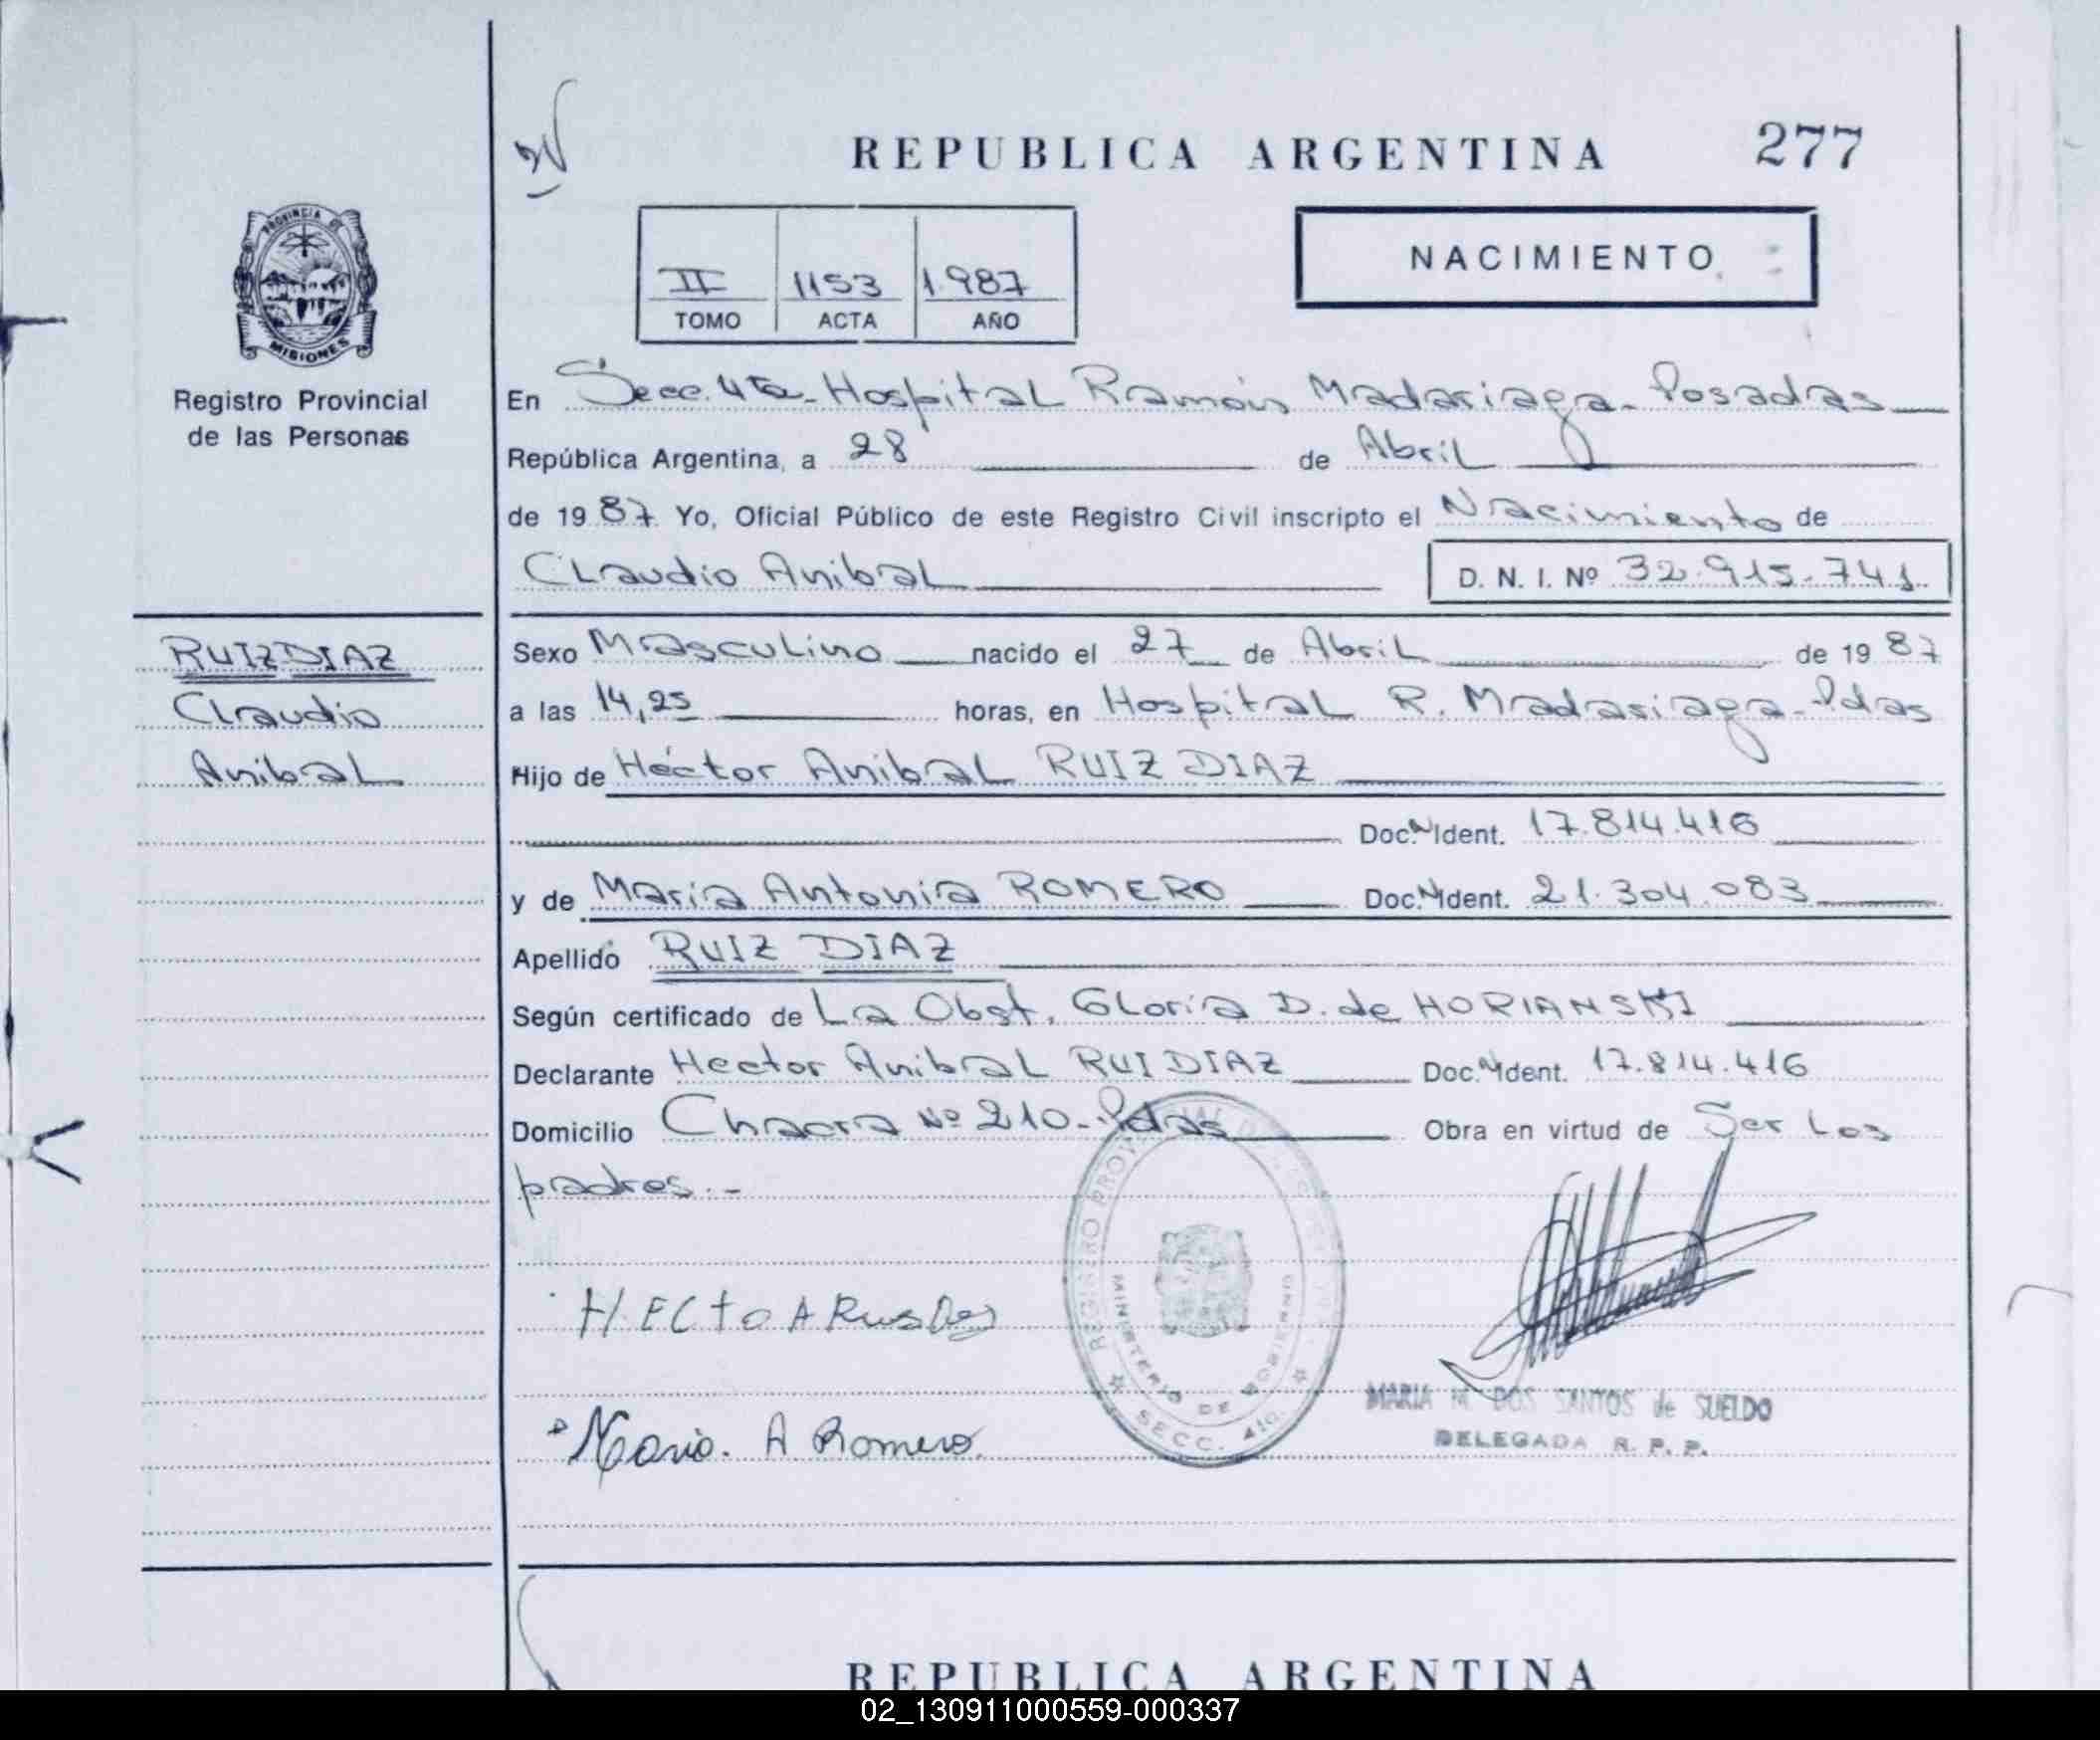 REPUBLICA ARGENTINA 277
NACIMIENTO
II 1153 1.987
TOMO ACTA AÑO
PROVINCIA DE
MISIONES
Registro Provincial
de las Personas
En Secc. 4ta - Hospital Ramón Madariaga - Posadas
República Argentina, a 28 de Abril
de 1987 Yo, Oficial Público de este Registro Civil inscripto el Nacimiento de
Claudio Anibal D. N. I. Nº 32.915.741
RUIZ DIAZ
Claudio
Anibal
Sexo Masculino nacido el 27 de Abril de 1987
a las 14,25 horas, en Hospital R. Madariaga - Pdas
Hijo de Héctor Anibal RUIZ DIAZ
Doc. N Ident. 17.814.416
y de María Antonia ROMERO Doc. N Ident. 21.304.083
Apellido RUIZ DIAZ
Según certificado de La Obst. Gloria D. de HORIANSKI
Declarante Hector Anibal RUI DIAZ Doc. N Ident. 17.814.416
Domicilio Chacra Nº 210 - Pdas Obra en virtud de Ser Los
padres.-
REGISTRO PROVINCIAL DE
MINISTERIO DE GOBIERNO
SECC. 4ta.
HECtO A
Maria. A Romero.
MARIA M. DOS SANTOS de SUELDO
DELEGADA R. P. P.
REPUBLICA ARGENTINA
02_130911000559-000337